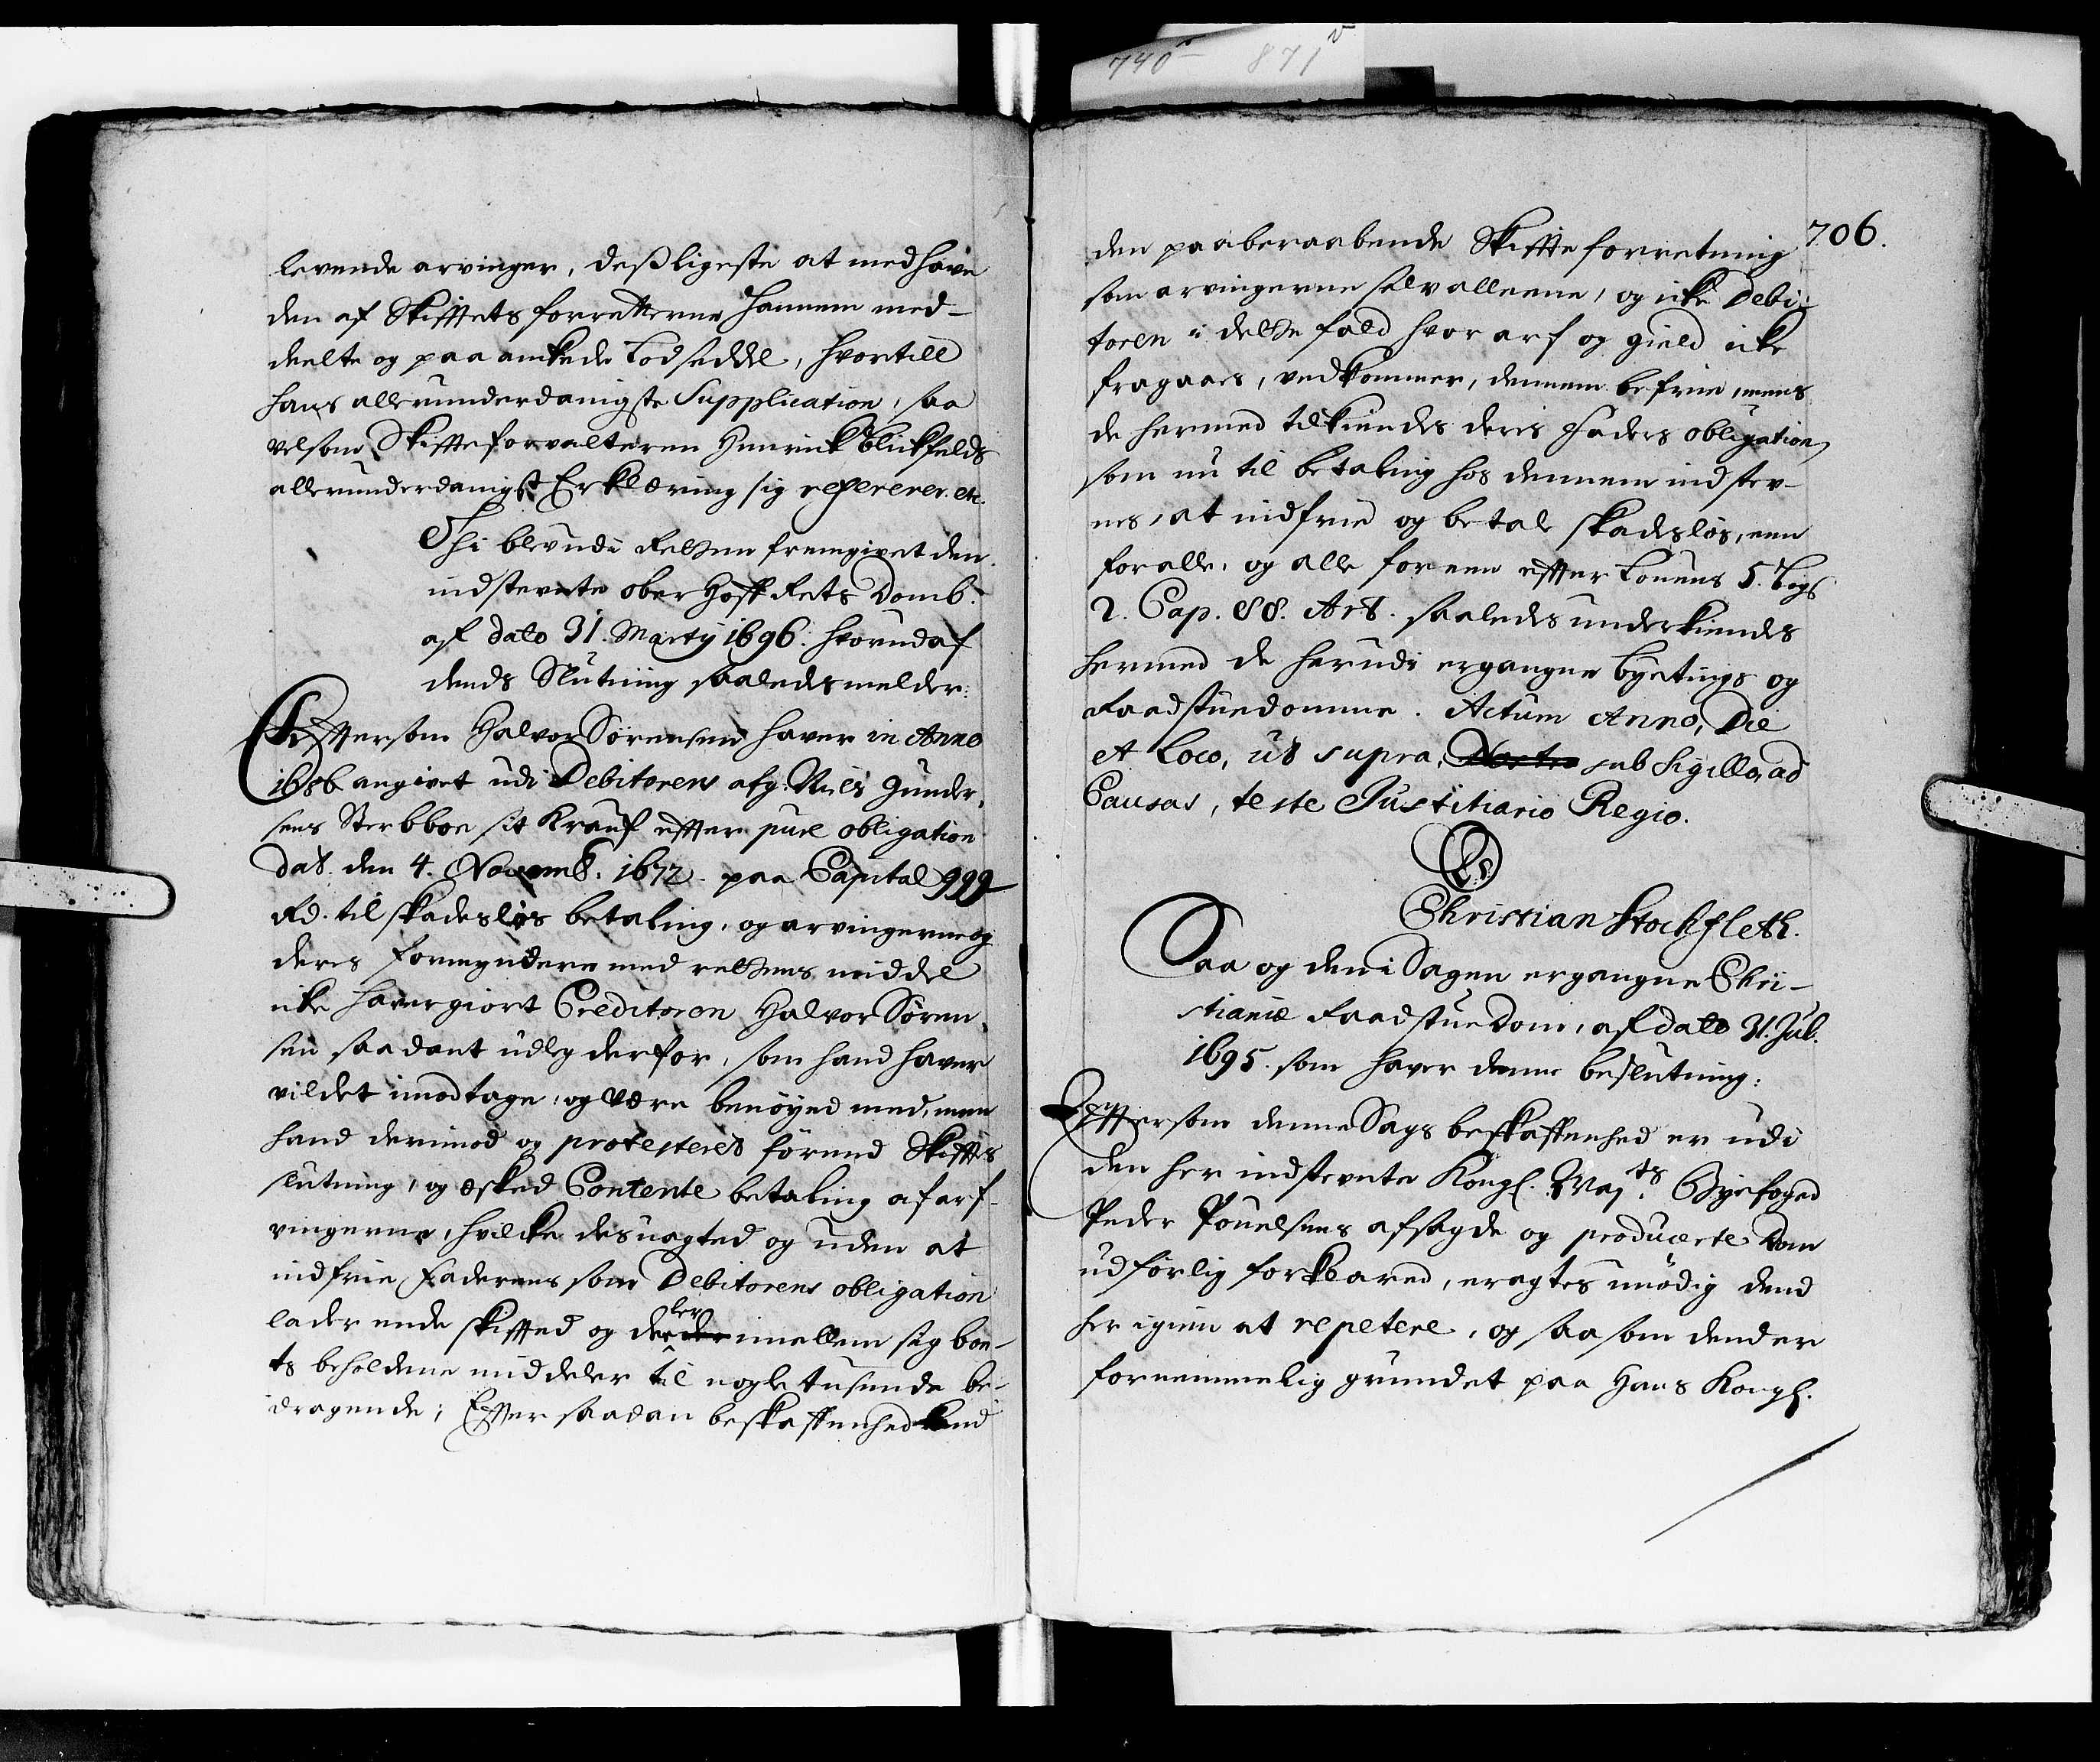 740 871v
levende arvinger, desligeste at med have
den af Skifftets forretterne hannem med-
deelte og paaankede Lodseddel, hvortill
hans allerunderdanigste Supplication, saa
velsom Skiffteforvalteren Henrick Blickfelds
allerunderdanigst Erklæring sig refererer. etc.
Thi blev udi Retten fremgivet den
indstevnte ober Hoff Rets Domb.
af dato 31. Marty 1696. hvorudaf
dends Slutning saaledes melder:
Efftersom Halvor Sørensen haver in Anno
1686 angivet udi Debitorens afg. Niels Gunder-
sens Sterbboe sit Krauf effter pure obligation
dat. den 4. Novemb. 1672. paa Capital 999
Rd. til skadesløs betaling, og arvingerne og
deris formyndere med rettens middel
icke haver giort Creditoren Halvor Søren-
sen saadant udleg derfor, som hand haver
vildet imodtage, og være benøyed med, men
hand derimod og protesteret førend Skifftes
slutning, og æsked Contente betaling af arf-
vingerne, hvilcke desuagted og uden at
indfrie Faderens som Debitorens obligation
lader ende skifftet og deeler imellem sig boe-
ts beholdene middeler til nogle tusende be-
dragende; Effter saadan beskaffenhed kand
706.
den paaberaabende Skiffteforretning
som arvingerne selv alleene, og icke Debi-
toren i dette fald hvor arf og gield icke
fragaaes, vedkommer, dennem befrie, mens
de hermed tilkiendes deris Faders obligation,
som nu til betaling hos dennem indstev-
nes, at indfrie og betale skadesløs, een
for alle, og alle for een effter Louens 5. bogs
2. Cap. 88. Art. saaledes underkiendes
hermed de herudi ergangne byetings og
Raadstuedomme. Actum Anno, Die
et Loco, ut supra, Nostro sub sigillo, ad
Causas, teste Justitiario Regio.
L.S.
Christian Stockfleth.
Saa og den i Sagen ergangne Chri-
stianiæ Raadstue Dom, af dato 31. Jul.
1695. som haver denne beslutning:
Efftersom denne Sags beskaffenhed er udi
den her indstevnte Kongl. Mayts Byefoged
Peder Pouelsens afsagde og producerte Dom
udførlig forklared, eragtes unødig dend
her igien at repetere, og saasom dend er
fornemmelig grundet paa Hans Kongl.